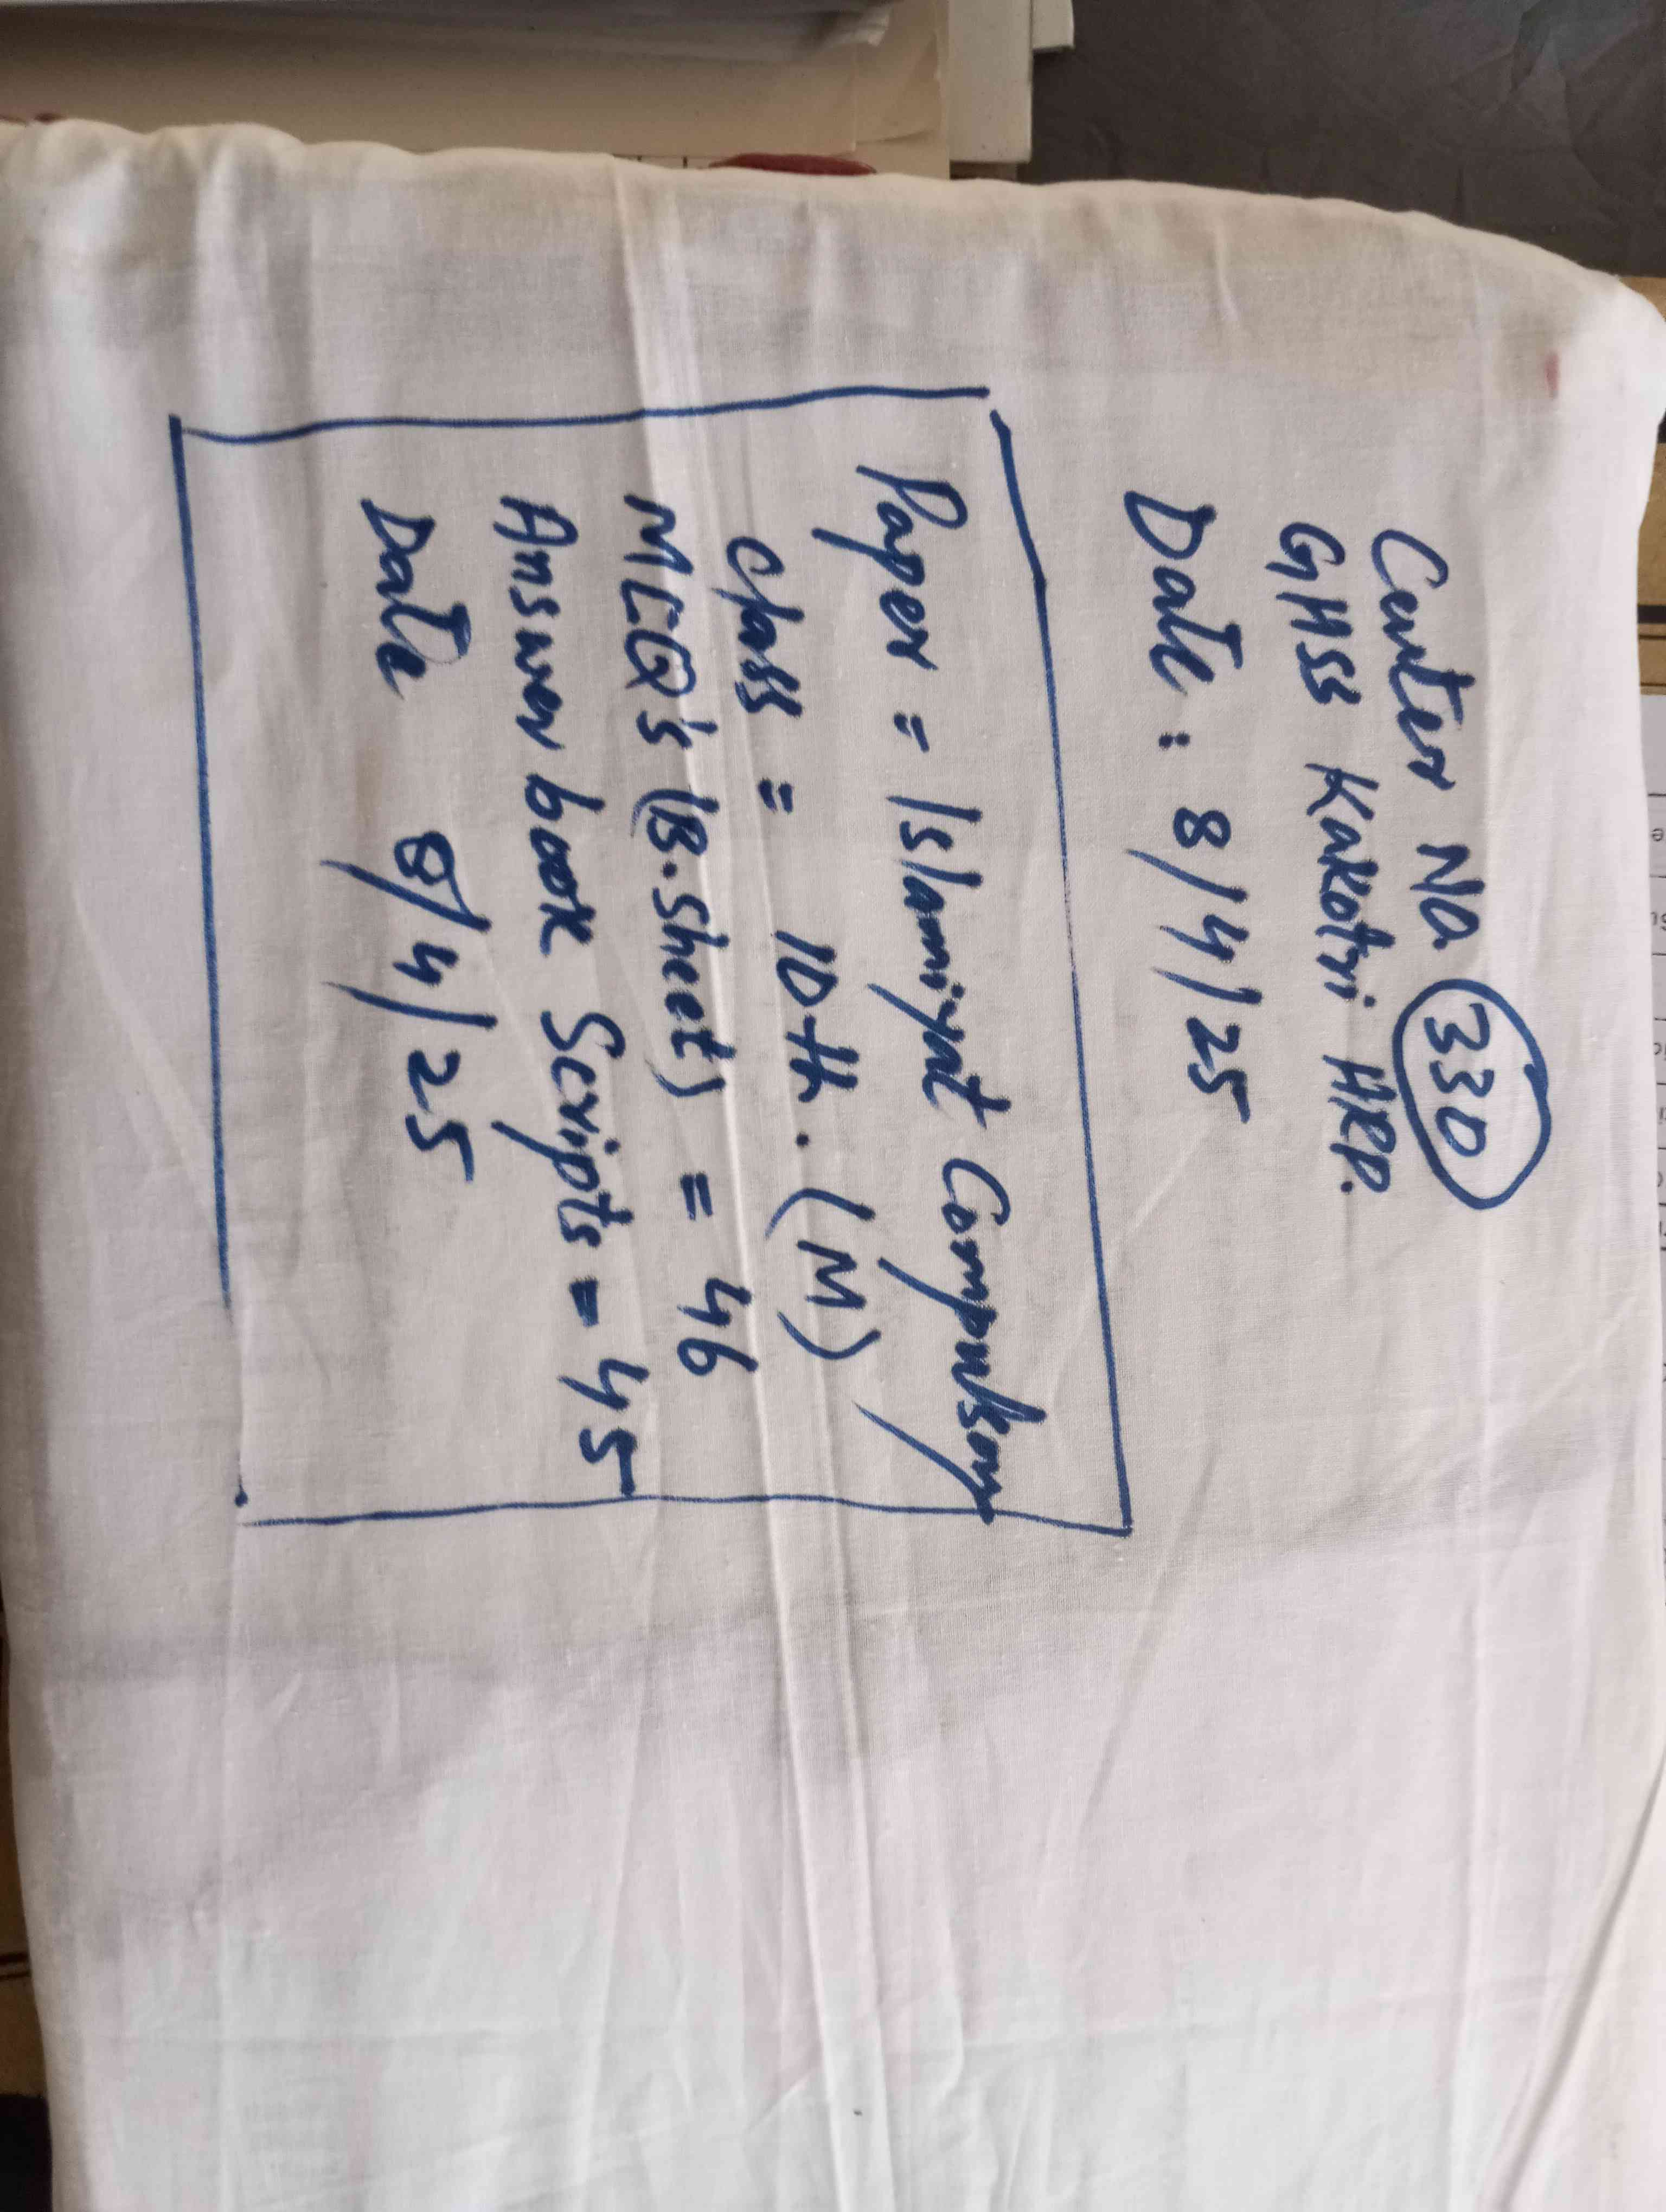 Center No. 330
GHSS Kakotri HRP.
Date : 8/4/25
Paper = Islamiyat Compulsory
Class = 10th. (M)
MCQ's (B.Sheet) = 46
Answer book Scripts = 45
Date 8/4/25